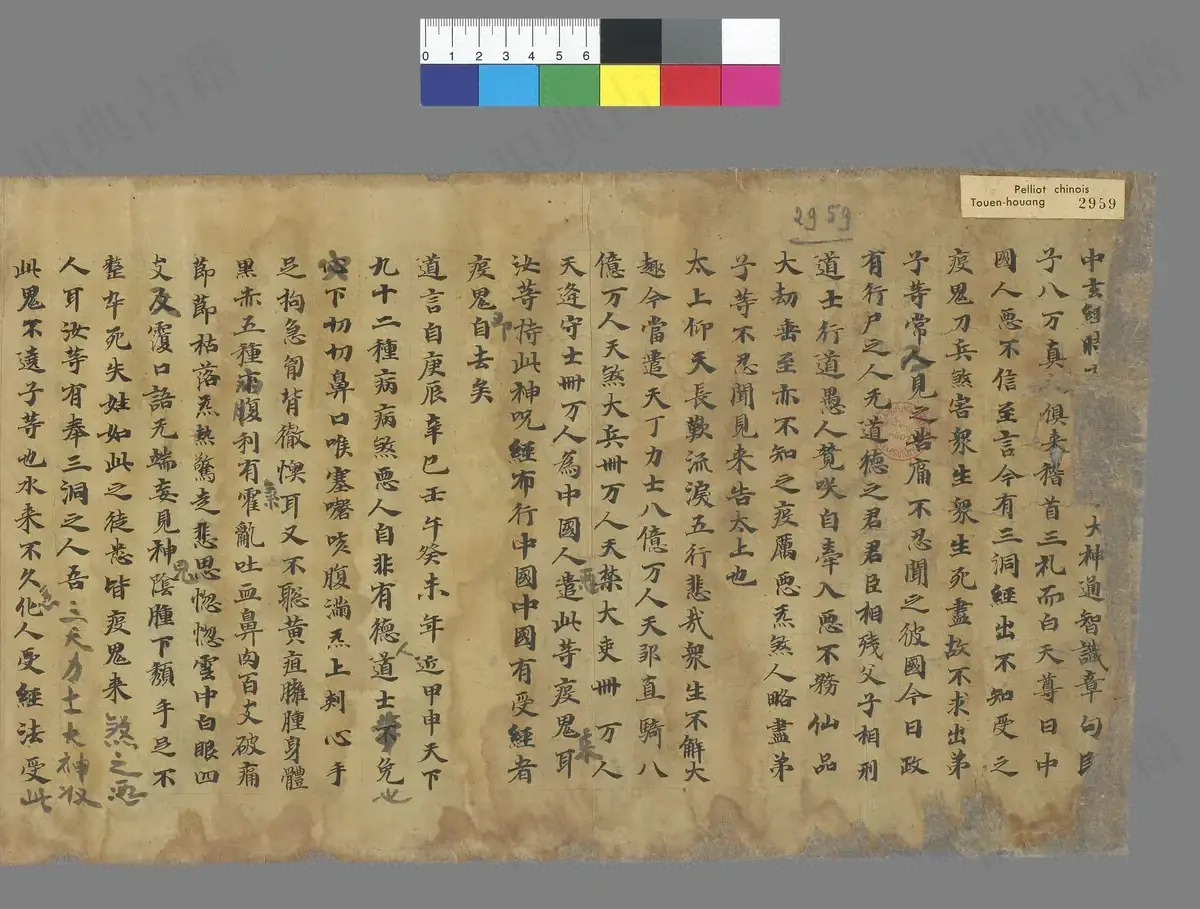 Pelliot chinois
Touen-houang 2959
2959
0 1 2 3 4 5 6
中玄經 大神通智識章句
子八万真 俱来稽首三礼而白天尊曰中
國人悪不信至言今有三洞經出不知受之
疫鬼刀兵煞害衆生衆生死盡故不求出弟
子等常人見之皆痛不忍聞之彼國今日政
有行尸之人无道德之君君臣相残父子相刑
道士行道愚人賛咲自牽入悪不務仙品
大劫垂至亦不知之疫厲悪炁煞人略盡弟
子等不忍聞見来告太上也
太上仰天長歎流淚五行悲我衆生不解大
趣今當遣天丁力士八億万人天郎直騎八
億万人天煞大兵卌万人天禁大吏卌万人
天逢守士卌万人為中國人遣此等疫鬼耳
汝等持此神呪經布行中國中國有受經者
疫鬼自去矣
道言自庚辰辛巳壬午癸未年近甲申天下
九十二種病病煞悪人自非有德道士人 免也
心下切切鼻口喉塞嗽咳腹満炁上刾心手
足拘急匈背徹懊耳又不聡黄疸臃腫身體
黒赤五種 腹利有霍亂吐血鼻肉百支破痛
節節枯落炁熱驚走悲思惚惚雲中白眼四
支及霞口語无端妄見神鬼陰腫下頽手足不
整卒死失姓如此之徒悉皆疫鬼来煞之
人耳汝等有奉三洞之人吾三天力士大神收
此鬼不遶子等也水来不久急化人受經法受此